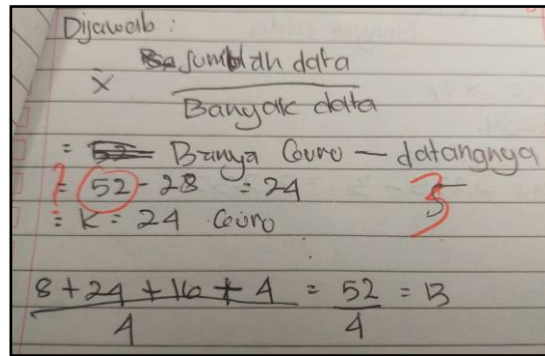 Dijawab :
x̄ Jumlah data
Banyak data
= Banya Guru – datangnya
? = 52 - 28 = 24
= K = 24 Guru
8 + 24 + 16 + 4 / 4 = 52 / 4 = 13